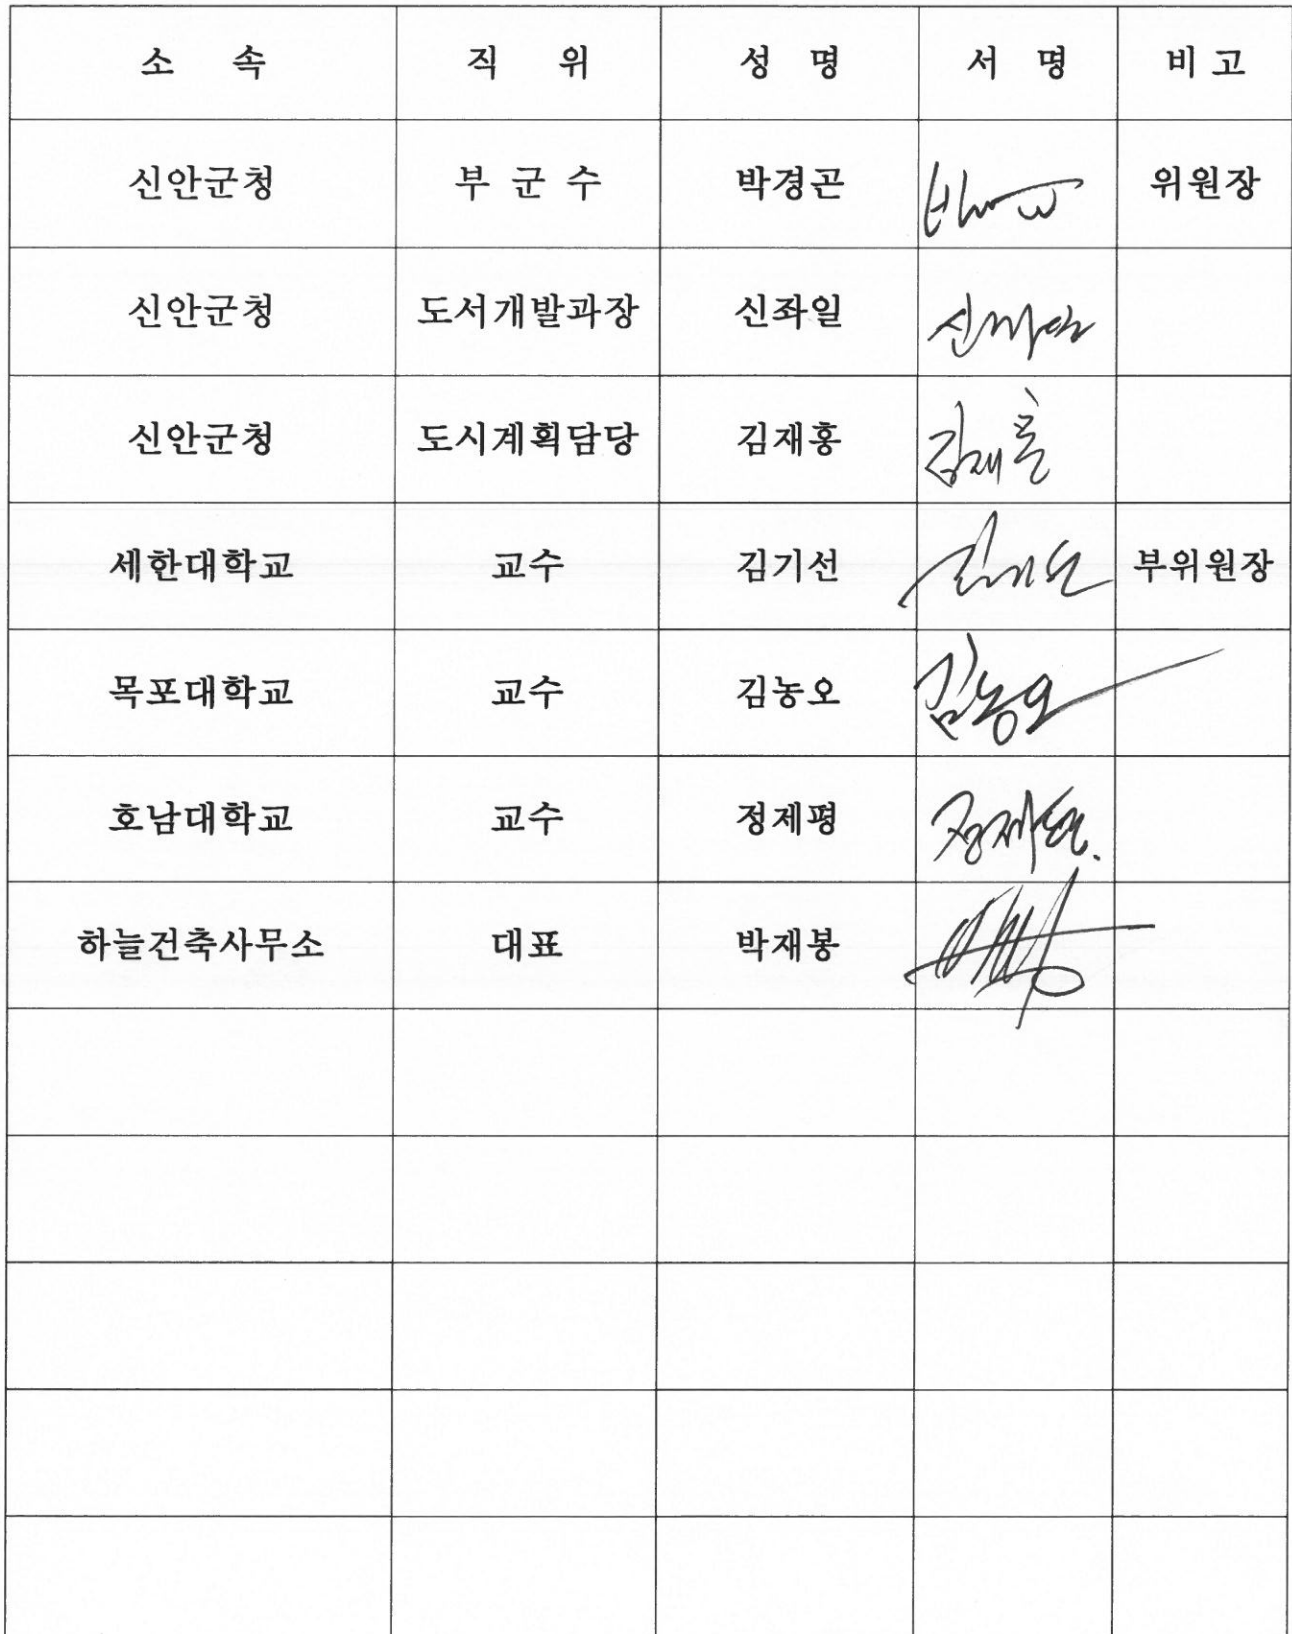 소 속 직 위 성 명 서 명 비 고
신안군청 부 군 수 박경곤 위원장
신안군청 도서개발과장 신좌일 신좌일
신안군청 도시계획담당 김재홍 김재홍
세한대학교 교수 김기선 김기선 부위원장
목포대학교 교수 김농오 김농오
호남대학교 교수 정제평 정제평
하늘건축사무소 대표 박재봉